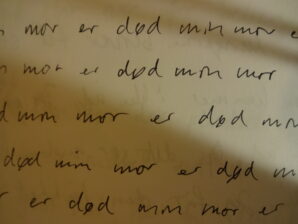 mor er død min mor e
mor er død min mor
min mor er død min
død min mor er død m
er død min mor er